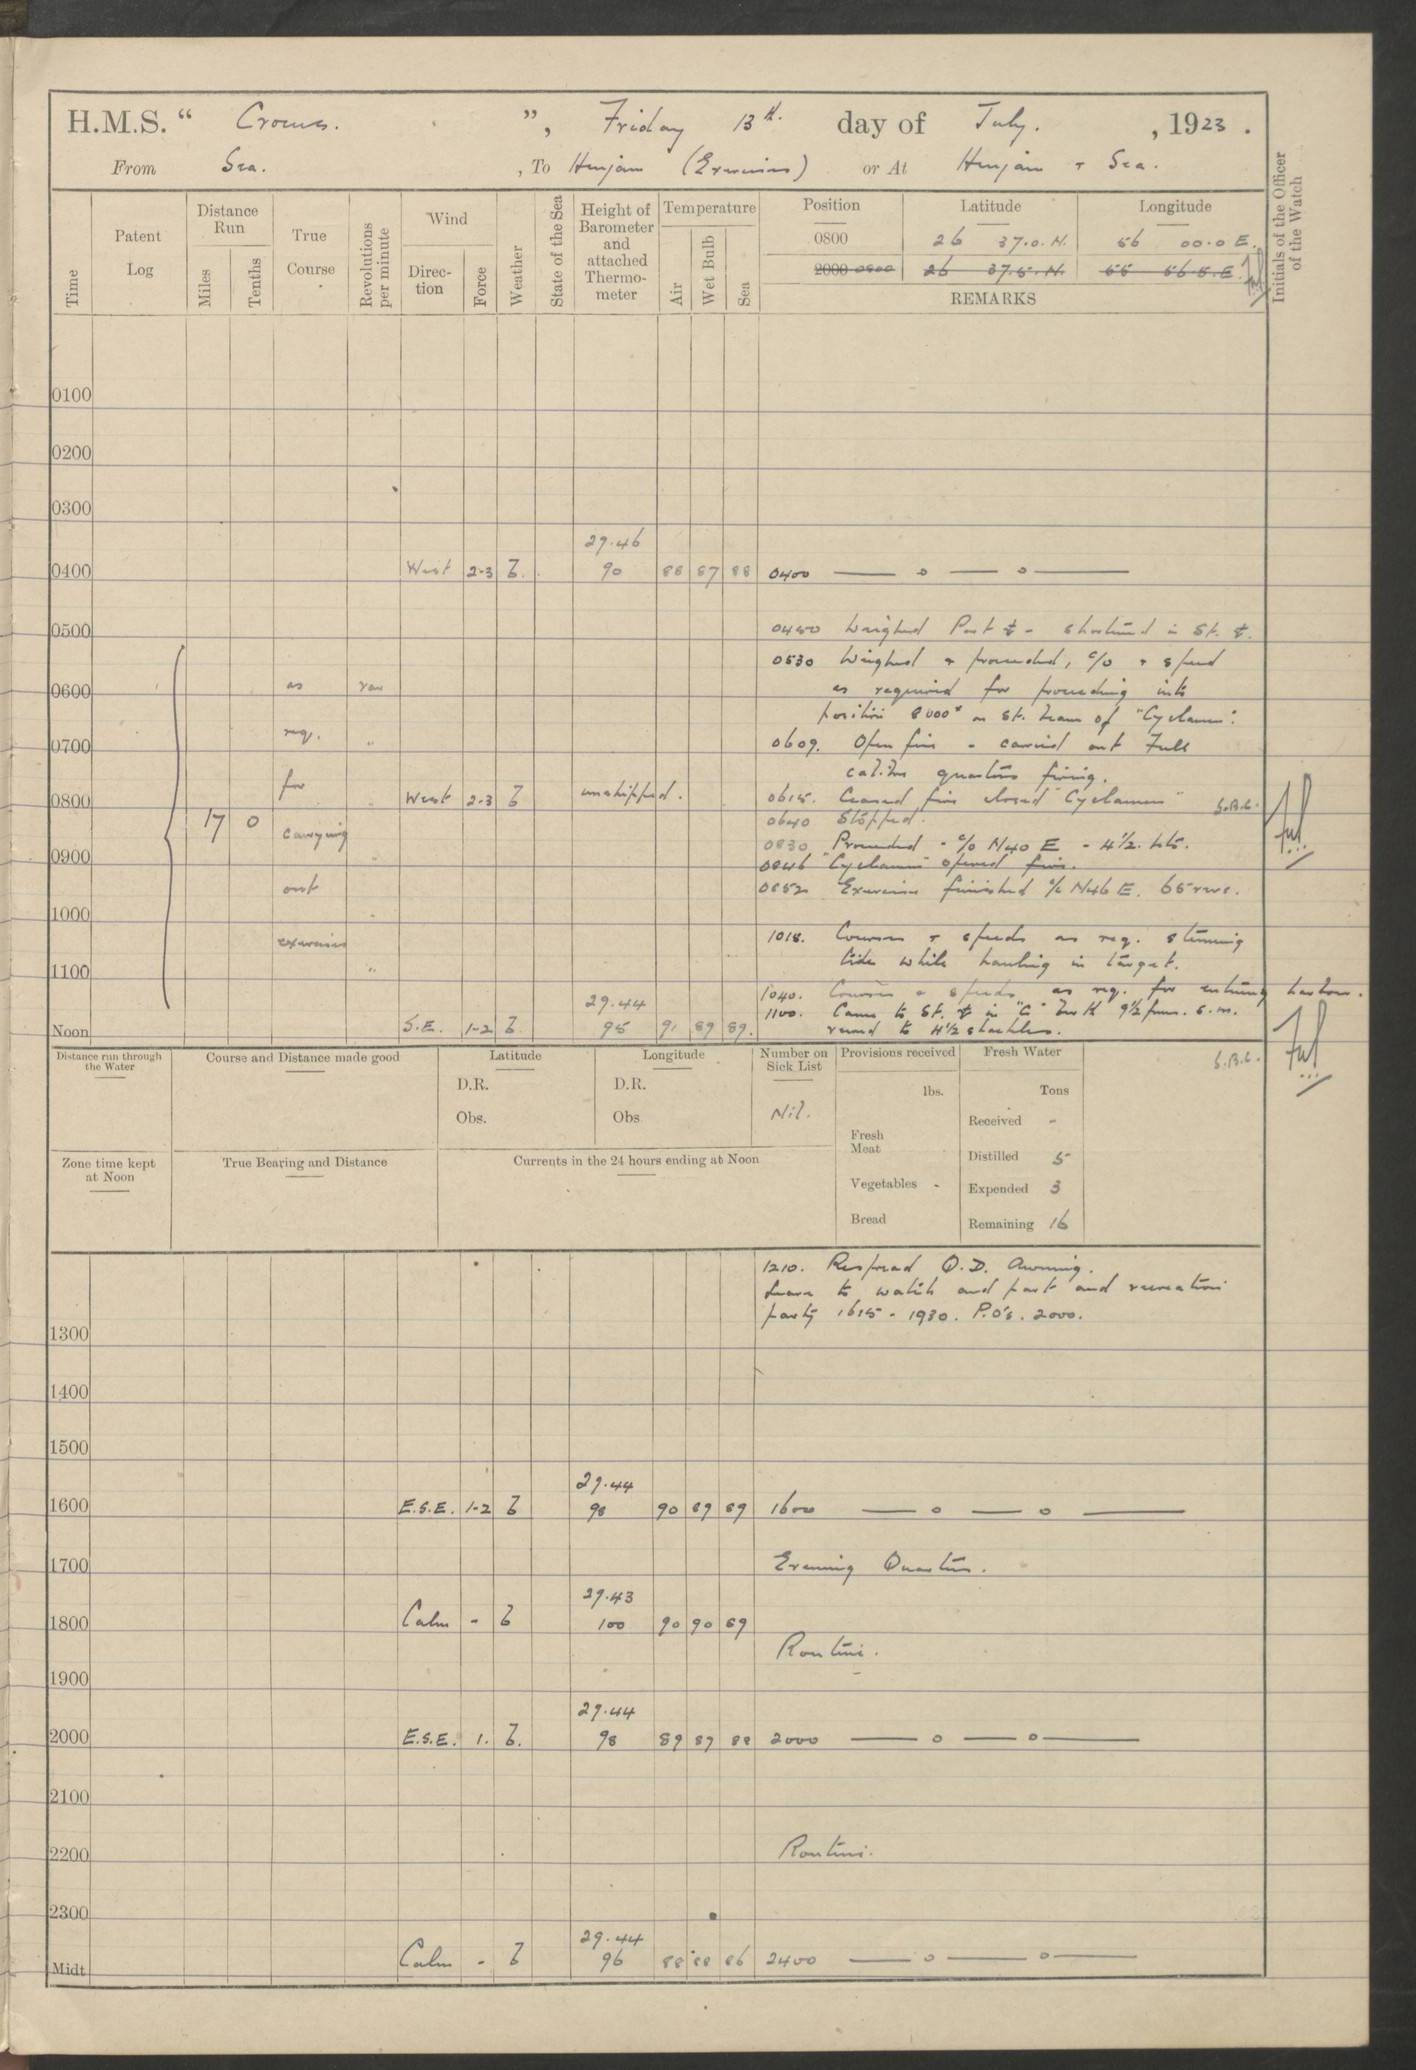 H.M.S. “ Crocus. ”, Friday 13th. day of July. , 1923 .
From Sea. , To Henjam (Exercises) or At Henjam + Sea.
Initials of the Officer of the Watch
Time
Patent Log
Distance Run
Miles
Tenths
True Course
Revolutions per minute
Wind
Direction
Force
Weather
State of the Sea
Height of Barometer and attached Thermometer
Temperature
Air
Wet Bulb
Sea
Position Latitude Longitude
0800 26 37.0.N. 56 00.0 E.
2000 0800 26 37.5.N. 55 56.5.E.
REMARKS
0100
0200
0300
29.46
0400 West 2-3 b. 90 88 87 88 0400 — o — o —
0450 Weighed Port ⚓ - shortened in St. ⚓.
0500
0530 Weighed + proceeded, c/o + speed
0600 as req for proceeding into
as required for proceeding into
position 8000x on St. beam of "Cyclamen".
req. "
0700 0609. Open fire - carried out Full
calibre quarters firing.
for "
0800 West 2-3 b unshipped. 0615. Ceased fire closed "Cyclamen" S.B.L.
17 0 carrying 0640 Stopped.
0830 Proceeded - c/o N40 E - 4½ kts.
0900 0846 "Cyclamen" opened fire.
out " 0852 Exercise finished c/c N46 E. 65 revs.
1000
exercises " 1018. Courses + speeds as req. stemming
tide while hauling in target.
1100
1040. Courses + speeds as req. for entering harbour.
29.44 1100. Came to St. ⚓ in "C" 9½ fms. s.m.
Noon S.E. 1-2 b. 95 91 89 89. veered to 4½ shackles.
Distance run through the Water
Course and Distance made good
Latitude
D.R.
Obs.
Longitude
D.R.
Obs
Number on Sick List
Nil.
Provisions received
lbs.
Fresh Meat
Vegetables -
Bread
Fresh Water
Tons
Received -
Distilled 5
Expended 3
Remaining 16
S.B.L.
Zone time kept at Noon
True Bearing and Distance
Currents in the 24 hours ending at Noon
1210. Respread Q.D. Awning.
Leave to watch and part and recreation
party 1615 - 1930. P.O's. 2000.
1300
1400
1500
29.44
1600 E.S.E. 1-2 b 98 90 89 89 1600 — o — o —
1700 Evening Quarters.
29.43
1800 Calm - b 100 90 90 89
Routine.
1900
29.44
2000 E.S.E. 1. b. 98 89 87 88 2000 — o — o —
2100
2200 Routine.
2300
29.44
Midt Calm - b 96 88 88 86 2400 — o — o —